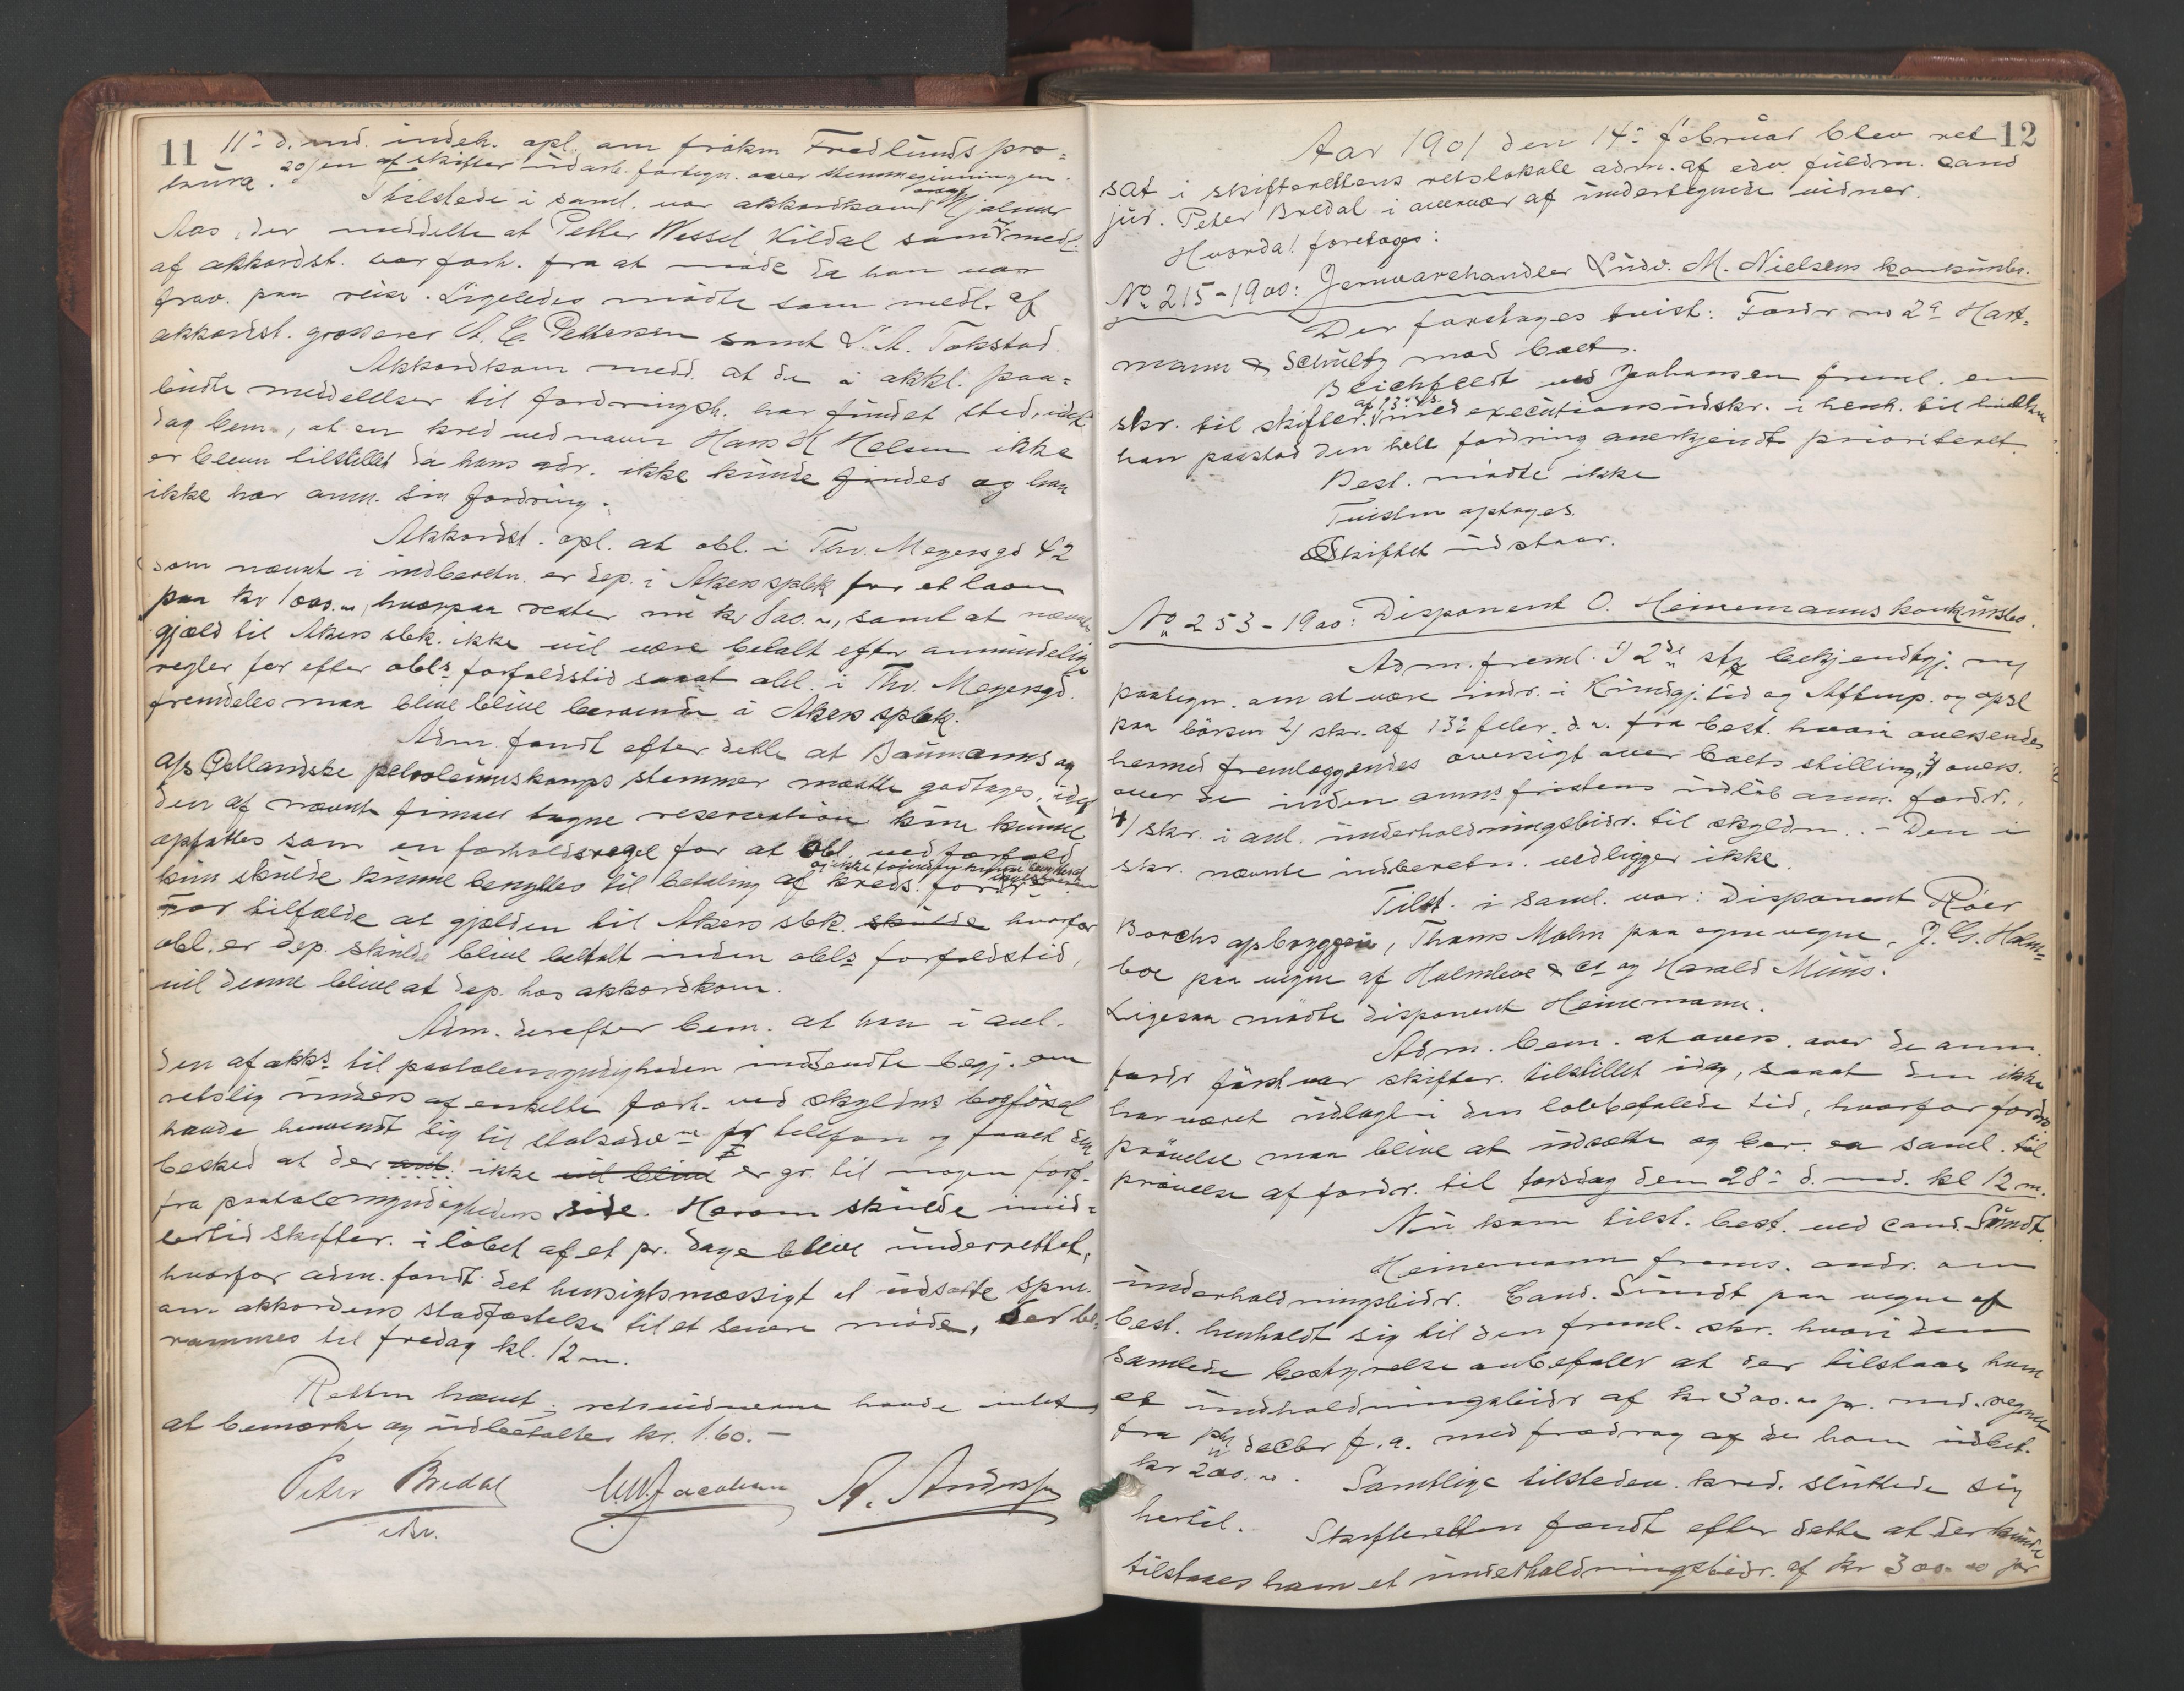 11
11te d. md. indeh. opl. om frøkn Fredlunds pro=
kura. 20/ en af skifter. udarb. fortegn. over stemmegivningen.
Tilstede i saml. var akkordkom overs Hjalmar
Aas, der meddelte at Petter Wessel Kildal som medl.
af akkordst. var forh. fra at møde da han var
frav. paa reise. Ligeledes mødte som medl. af
akkordst. grosserer A. C. Pettersen samt L. A. Tokstad.
Akkordkom medd. at de i akkl. paa=
budte meddelelser til fordringsh. har fundet sted, idet
dog bem., at en kred ved navn Hans H Nelsen ikke
er bleven tilstillet da hans adr. ikke kunde findes og han
ikke har anm. sin fordring.
Akkordst. opl. at obl. i Thv. Meyersgd 42
som nævnt i indberetn. er dep. i Akers spbk for et laan
paa kr 1000.00, hvorpaa rester nu kr 800.00, samt at nævnte
gjæld til Akers sbk. ikke vil være betalt efter almindelige
regler før efter obls forfaldstid saaat obl. i Thv. Meyersgd.
fremdeles maa blive blive beroende i Akers spbk.
Adm. fandt efter dette at Baumanns og
A/s Østlandske petroleumskomps stemmer maatte godtages, idet
den af nævnte firmaer tagne reservation kun kunde
opfattes som en forholdsregel for at obl. ved forfald
kun skulde kunne benyttes til betaling af kreds. fordr
og ikke forinden kunne benyttes
For tilfælde at gjælden til Akers sbk. skulde hvorfor
obl. er dep. skulde blive betalt inden obls forfaldstid,
vil denne blive at dep. hos akkordkom.
Adm. derefter bem. at han i anl.
den af akks til paatalemyndigheden indsendte begj. om
retslig unders af enkelte forh. ved skyldns bogførsel
havde henvendt sig til statsadv pr telefon og faaet den
besked at der ant. ikke vil blive er gr. til nogen forf.
fra paatalemyndighedens side. Herom skulde imid=
lertid skifter. i løbet af et pr. dage blive underrettet,
hvorfor adm. fandt det hensigtsmæssigt at udsætte spm.
om akkordens stadfæstelse til et senere møde, der be=
rammes til fredag kl. 12 m.
Retten hævet; retsvidnerne havde intet
at bemærke og udbetaltes kr. 1.60.-
Peter Bredal
A. Anderssen
12
Aar 1901 den 14de februar blev ret
sat i skifterettens retslokale adm. af edv. fuldm. cand
jur. Peter Bredal i overvær af undertegnede vidner.
Hvorda! foretoges:
No 215-1900: Jernvarehandler Ludv. M. Nielsens konkursbo.
Der foretoges tvist: Fordr no 2a Hart=
mann & Schultz mod boet.
Bleichfeldt ved Johansen freml. en
skr. til skifter. af 13 ds. med executionsudskr. i henh. til hvilken
han paastod den hele fordring anerkjendt prioriteret.
Best. mødte ikke
Tvisten optoges.
Skiftet udstaar.
No 253-1900: Disponent O. Heinemanns konkursbo.
Adm. freml. 1) 2de stk bekjendtgj. m/
paategn. om at være indr. i Kundgj.tid og Aftenp. og opsl
paa børsen 2) skr. af 13de febr. d. a. fra best. hvori oversendes
hermed fremlæggendes oversigt over boets stilling, 3) overs.
over de inden anms fristens udløb anm. fordr.,
4) skr. i anl. underholdningsbidr. til skyldn.. - Den i
skr. nævnte indberetn. vedligger ikke.
Tilst. i saml. var: Disponent Røer
Borchs opbryggeri, Thams Malm paa egne vegne, J. G. Holm=
boe paa vegne af Holmboe & Co og Harald Muus.
Ligesaa mødte disponent Heinemann.
Adm. bem. at overs. over de anm.
fordr først var skifter. tilstillet idag, saaat den ikke
har været udlagt i den lovbefalede tid, hvorfor fordrs.
prøvelse maa blive at udsætte og ber. en saml. til
prøvelse af fordr. til torsdag den 28de d. md. kl 12 m.
Nu kom tilst. best. ved cand. Sundt.
Heinemann frems. andr. om
underholdningsbidr. Cand. Sundt paa vegne af
best. henholdt sig til den freml. skr. hvori den
samlede bestyrelse anbefaler at der tilstaaes ham
et underholdningsbidr af kr 300.00 pr. md. regnet
fra decbr f. a. med fradrag af de ham udbet.
kr 200.00. Samtlige tilstedev. kred. sluttede sig
hertil.
Skifteretten fandt efter dette at der kunde
tilstaaes ham et underholdningsbidr. af kr 300.00 pr